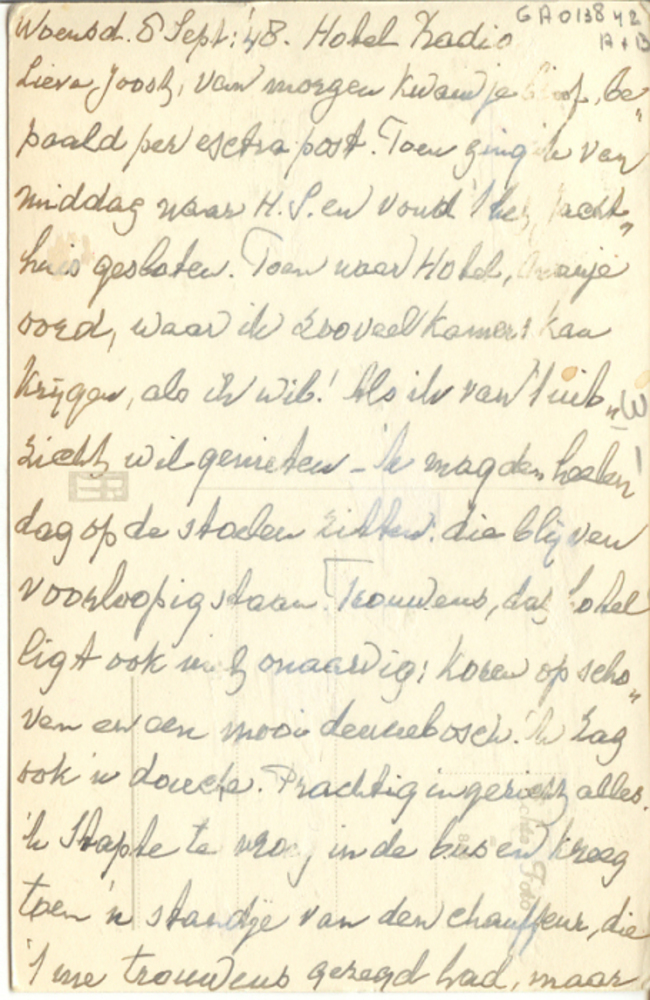 GA013842
A+B
Woensd. 8 Sept: '48. Hotel Radio
Lieve Joost, van morgen kwam je brief, be„
paald per extra post. Toen ging ik van
middag naar H.S. en vond 't het Jacht„
huis gesloten. Toen naar Hotel, Oranje
oord, waar ik zooveel kamers kan
krijgen, als ik wil! Als ik van 't uit„
zicht wil genieten - 'k mag den heelen
dag op de stoelen zitten: die blijven
voorloopig staan. Trouwens, dat hotel
ligt ook niet onaardig: Koren op scho„
ven en een mooi dennebosch. 'k Zag
ook 'n douche. Prachtig ingericht alles.
'k Stapte te vroeg in de bus en kreeg
toen 'n standje van den chauffeur, die
't me trouwens gezegd had, maar